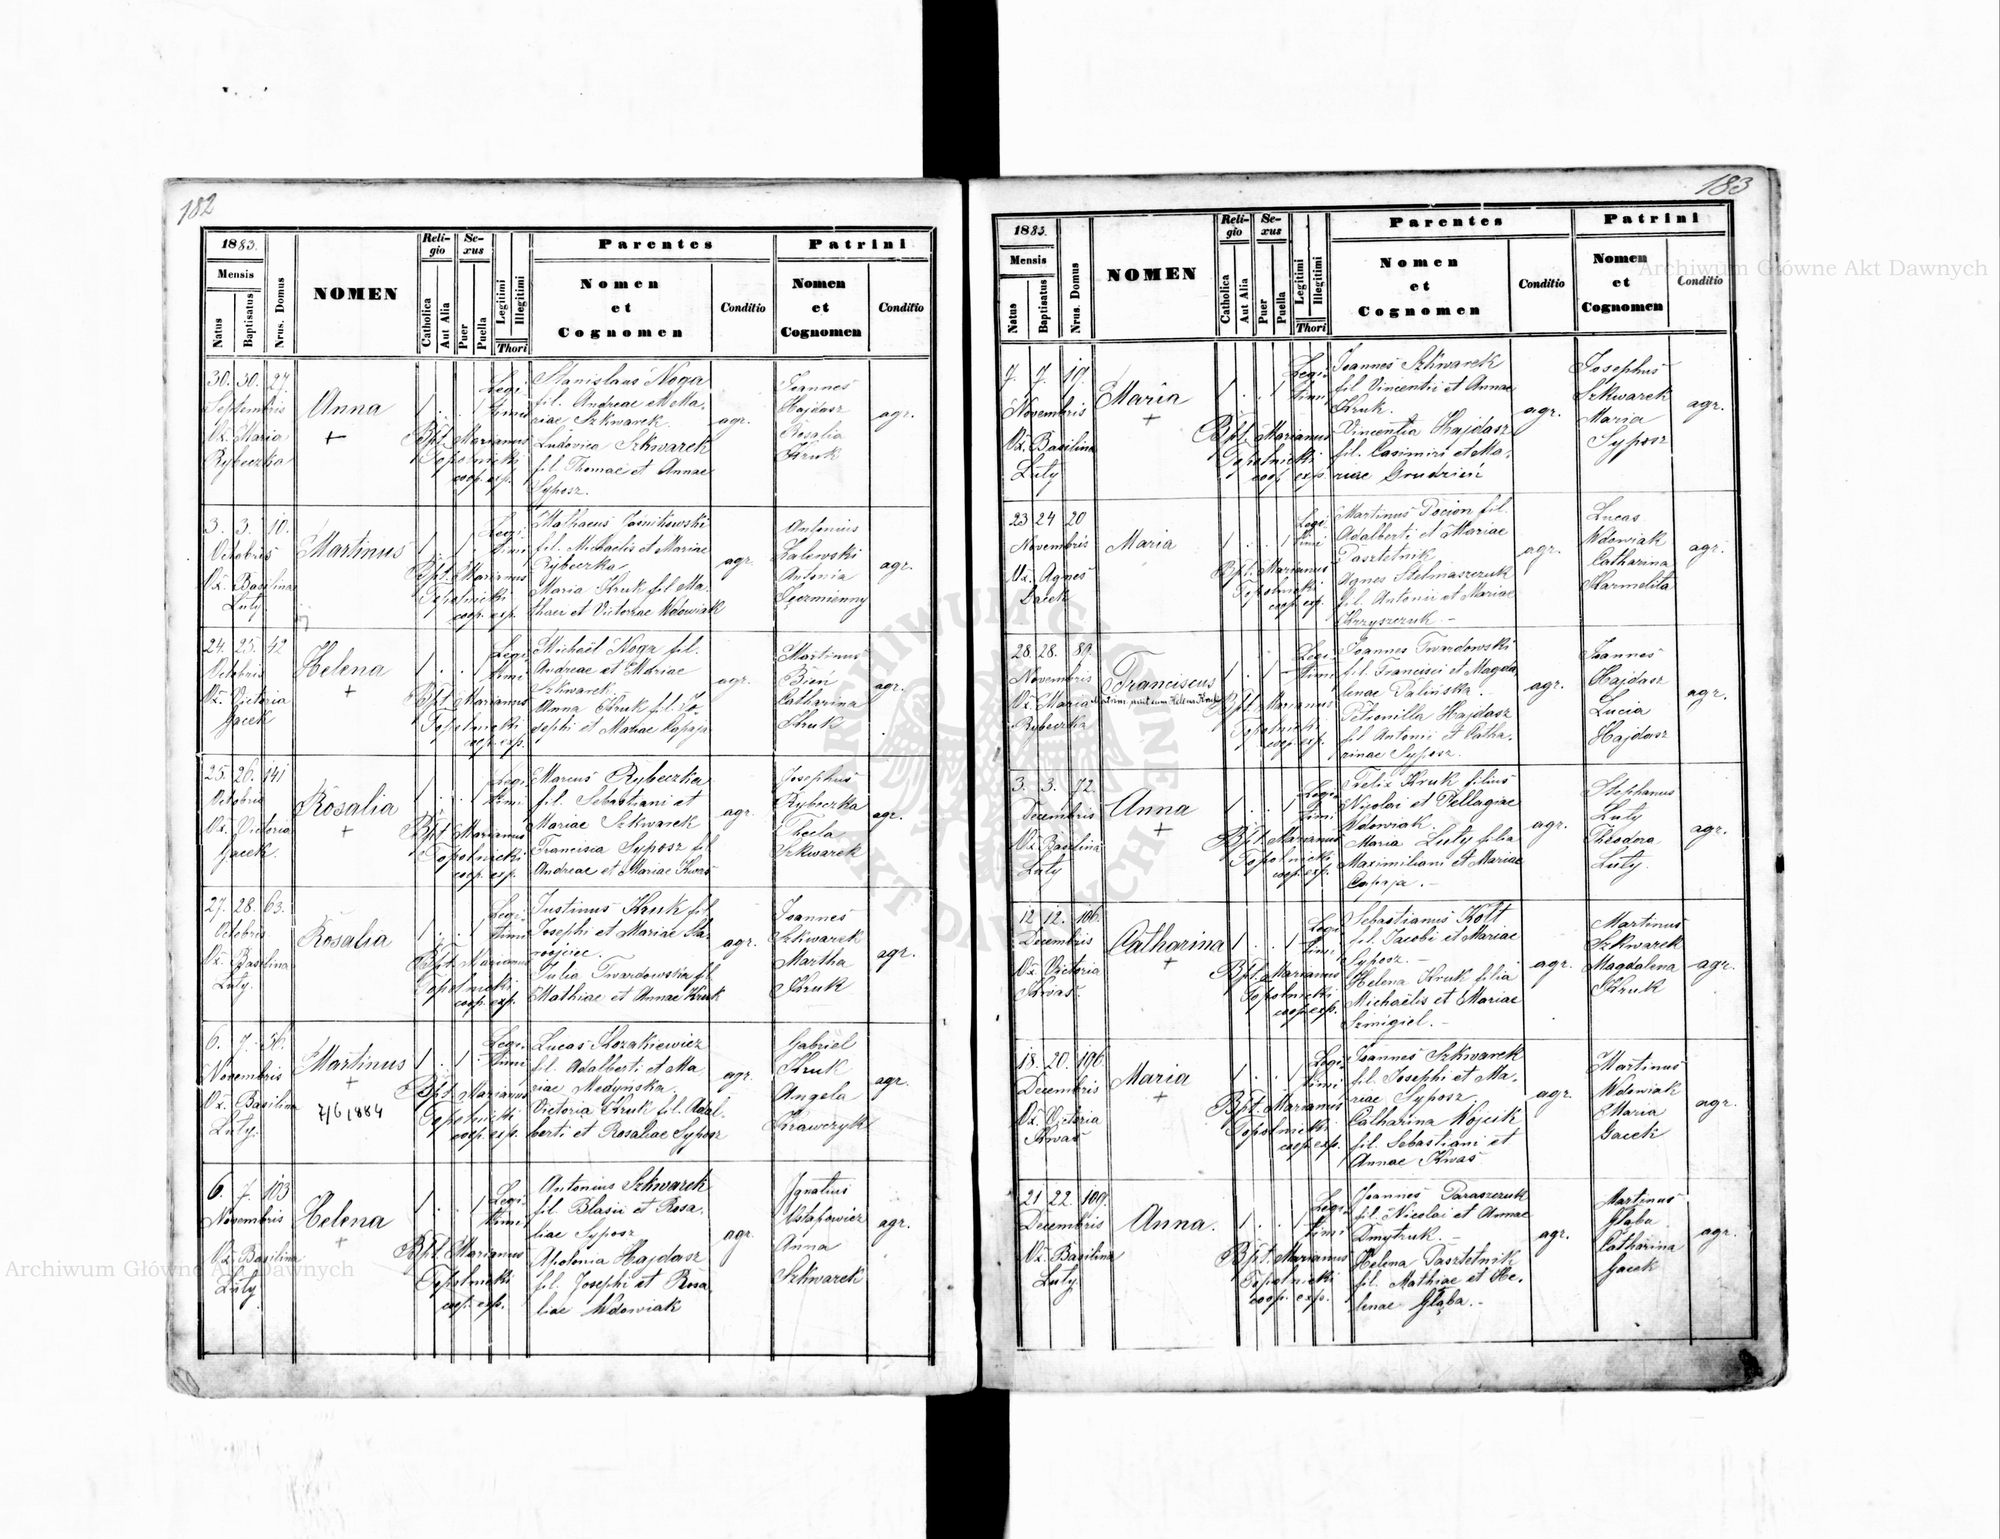 182
1883.
Mensis
Natus
Baptisatus
Nrus. Domus
NOMEN
Reli-
gio
Catholica
Aut Alia
Se-
xus
Puer
Puella
Legitimi
Illegitimi
Thori
Parentes
Nomen
et
Cognomen
Conditio
Patrini
Nomen
et
Cognomen
Conditio
30. 30. 27.
Septembris
Oz. Maria
Rybeczka
Anna
+
1 . . 1
Legi-
timi
Bpt. Marianus
Topolnicki
coop. exp.
Stanislaus Noga
fil. Andreae et Ma-
riae Szkwarek.
Ludovica Szkwarek
fil. Thomae et Annae
Syposz.
agr.
Joannes
Hajdasz
Rosalia
Kruk
agr.
3. 3. 10.
Octobris
Oz. Basilina
Luty.
Martinus
1 . 1 .
Legi-
timi
Bpt. Marianus
Topolnicki
coop. exp.
Mathaeus Jasnikowski
fil. Michaelis et Mariae
Rybeczka
Maria Kruk fil. Ma-
thaei et Victoriae Wdowiak
agr.
Antonius
Zalewski
Antonia
agr.
24. 25. 42
Octobris
Oz. Victoria
Gacek
Helena
+
1 . . 1
Legi-
timi
Bpt. Marianus
Topolnicki
coop. exp.
Michael Noga fil.
Andreae et Mariae
Szkwarek.
Anna Kruk fil. Jo-
sephi et Mariae
agr.
Martinus
Bien
Catharina
Kruk
agr.
25. 26. 141
Octobris
Oz. Victoria
Gacek.
Rosalia
+
1 . . 1
Legi-
timi
Bpt. Marianus
Topolnicki
coop. exp.
Marcus Rybeczka
fil. Sebastiani et
Mariae Szkwarek
Francisca Syposz fil.
Andreae et Mariae Kwas
agr.
Josephus
Rybeczka
Thecla
Szkwarek
agr.
27. 28. 63.
Octobris
Oz. Basilina
Luty.
Rosalia
1 . . 1
Legi-
timi
Bpt. Marianus
Topolnicki
coop. exp.
Justinus Kruk fil.
Josephi et Mariae
Julia Twardowska fil.
Mathiae et Annae Kruk
agr.
Joannes
Szkwarek
Martha
Kruk
agr.
6. 7. 56.
Novembris
Oz. Basilina
Luty.
Martinus
+
7/6 1884
1 . 1 .
Legi-
timi
Bpt. Marianus
Topolnicki
coop. exp.
Lucas Kozakiewicz
fil. Adalberti et Ma-
riae Medyńska.
Victoria Kruk fil. Adal-
berti et Rosaliae Syposz
agr.
Gabriel
Kruk
Angela
Krawczyk
agr.
6. 7. 103
Novembris
Oz. Basilina
Luty.
Helena
+
1 . . 1
Legi-
timi
Bpt. Marianus
Topolnicki
coop. exp.
Antonius Szkwarek
fil. Blasii et Rosa-
liae Syposz
Apolonia Hajdasz
fil. Josephi et Rosa-
liae Wdowiak
agr.
Ignatius
Ostafowicz
Anna
Szkwarek
agr.
183
1883.
Mensis
Natus
Baptisatus
Nrus. Domus
NOMEN
Reli-
gio
Catholica
Aut Alia
Se-
xus
Puer
Puella
Legitimi
Illegitimi
Thori
Parentes
Nomen
et
Cognomen
Conditio
Patrini
Nomen
et
Cognomen
Conditio
7. 7. 19.
Novembris
Oz. Basilina
Luty
Maria
+
1 . . 1
Legi-
timi
Bpt. Marianus
Topolnicki
coop. exp.
Joannes Szkwarek
fil. Vincentii et Annae
Kruk.
Vincentia Hajdasz
fil. Casimiri et Ma-
riae Grudzień
agr.
Josephus
Szkwarek
Maria
Syposz
agr.
23 24 20
Novembris
Oz. Agnes
Gacek
Maria
1 . . 1
Legi-
timi
Bpt. Marianus
Topolnicki
coop. exp.
Martinus Pocion fil.
Adalberti et Mariae
Pasztetnik
Agnes Stelmaszczuk
fil. Antonii et Mariae
Krzyszczuk. -
agr.
Lucas
Wdowiak
Catharina
Karmelita
agr.
28. 28. 89.
Novembris
Oz. Maria
Rybeczka
Franciscus
Helena Kruk
1 . 1 .
Legi-
timi
Bpt. Marianus
Topolnicki
coop. exp.
Joannes Twardowski
fil. Francisci et Magda-
lenae Palińska. -
Petronilla Hajdasz
fil. Antonii et Catha-
rinae Syposz.
agr.
Joannes
Hajdasz
Lucia
Hajdasz
agr.
3. 3. 72.
Decembris
Oz. Basilina
Luty
Anna
+
1 . . 1
Legi-
timi
Bpt. Marianus
Topolnicki
coop. exp.
Felix Kruk filius
Nicolai et Pellagiae
Wdowiak.
Maria Luty filia
Maximiliani et Mariae
agr.
Stephanus
Luty
Theodora
Luty.
agr.
12 12. 106.
Decembris
Oz. Victoria
Kwas.
Catharina
+
1 . . 1
Legi-
timi
Bpt. Marianus
Topolnicki
coop. exp.
Sebastianus Kolt
fil. Jacobi et Mariae
Syposz. -
Helena Kruk filia
Michaelis et Mariae
Szmigiel. -
agr.
Martinus
Szkwarek
Magdalena
Kruk
agr.
18. 20. 196.
Decembris
Oz. Victoria
Kwas
Maria
+
1 . . 1
Legi-
timi
Bpt. Marianus
Topolnicki
coop. exp.
Joannes Szkwarek
fil. Josephi et Ma-
riae Syposz.
Catharina Wojcik
fil. Sebastiani et
Annae Kwas
agr.
Martinus
Wdowiak
Maria
Gacek
agr.
21 22. 109.
Decembris
Oz. Basilina
Luty.
Anna.
1 . . 1
Legi-
timi
Bpt. Marianus
Topolnicki
coop. exp.
Joannes Paraszczuk
fil. Nicolai et Annae
Dmytruk. -
Helena Pasztetnik
fil. Mathiae et He-
lenae Głąba. -
agr.
Martinus
Głąba
Catharina
Gacek
agr.
Archiwum Główne Akt Dawnych
Archiwum Główne Akt Dawnych
ARCHIWUM GŁÓWNE AKT DAWNYCH